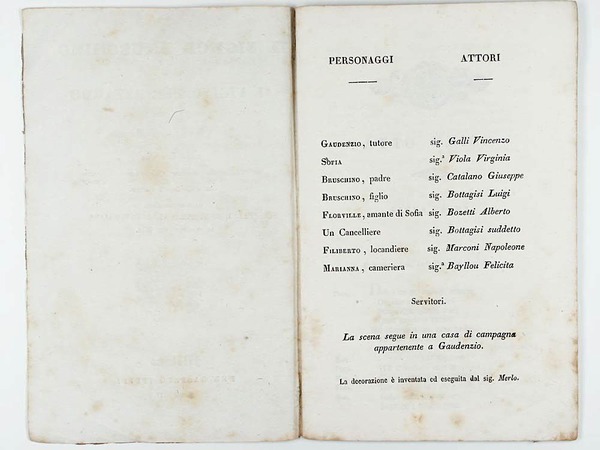 PERSONAGGI ATTORI
GAUDENZIO, tutore sig. Galli Vincenzo
SOFIA sig.ª Viola Virginia
BRUSCHINO, padre sig. Catalano Giuseppe
BRUSCHINO, figlio sig. Bottagisi Luigi
FLORVILLE, amante di Sofia sig. Bozetti Alberto
Un Cancelliere sig. Bottagisi suddetto
FILIBERTO, locandiere sig. Marconi Napoleone
MARIANNA, cameriera sig.ª Bayllou Felicita
Servitori.
La scena segue in una casa di campagna
appartenente a Gaudenzio.
La decorazione è inventata ed eseguita dal sig. Merlo.